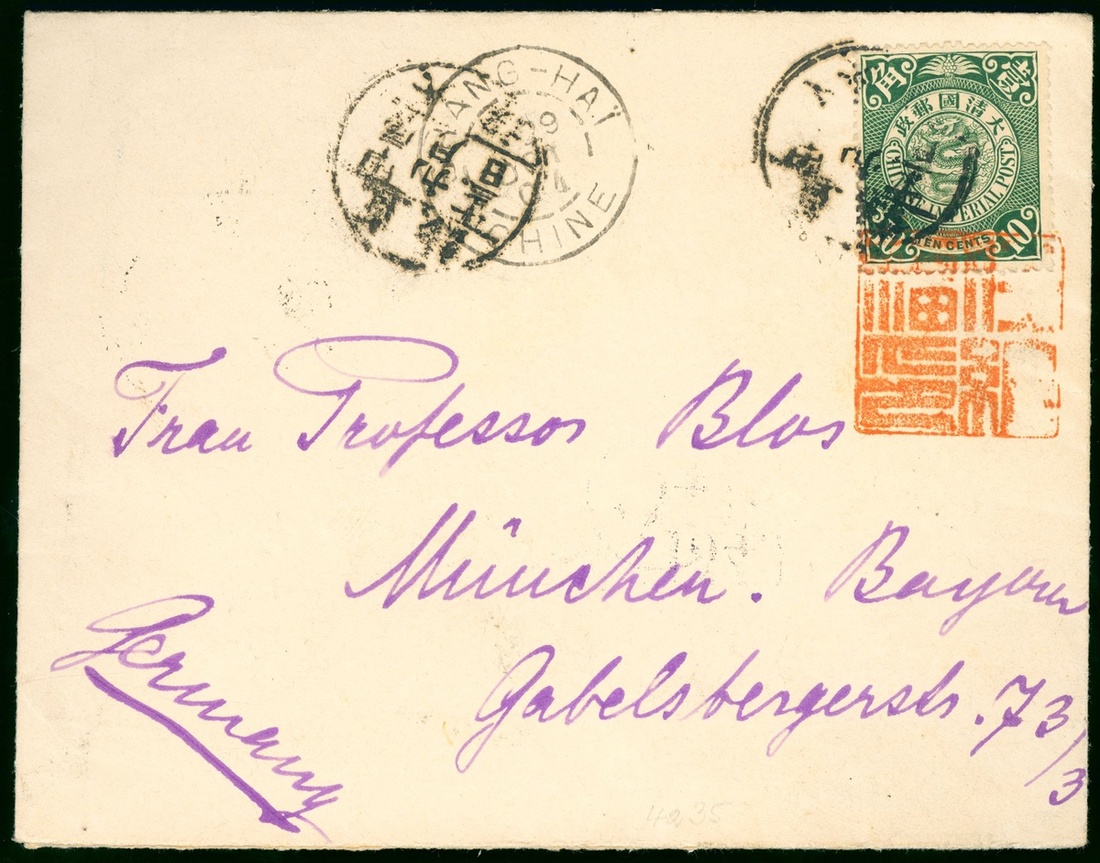 賁 角
大清國郵政
CHINESE IMPERIAL POST
10 TEN CENTS 10
CHANG-HAI
CHINE
Frau Professor Blos
München. Bayern
Gabelsbergerstr. 73/3
Germany
4235